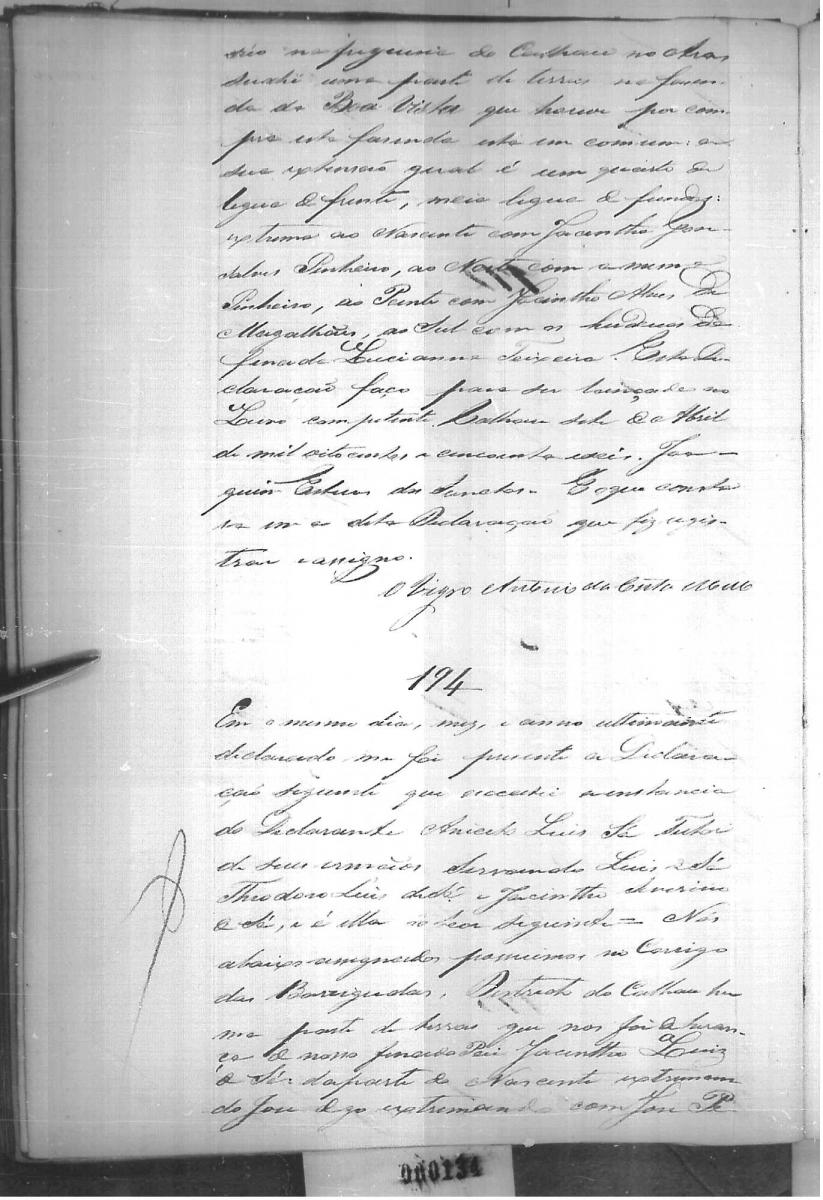 na freguesia do Calhau no
uma parte de terras na fasen-
da da Boa Vista que houve por com-
pra esta fasenda esta em comum: a
sua extensaõ geral é um quarto de
legua de frente, meia legua de fundos:
extrema ao Nascente com Jacintho Gon-
salves Pinheiro, ao Norte com o mesmo
Pinheiro, ao Poente com Jacintho Alves de
Magalhães, ao Sul com os herdeiros da
finada Lucianna Teixeira. Esta De-
claraçaõ faço para ser lançada no
Livro competente. Calhau sete de Abril
de mil oitocentos e cincoenta e seis. Joa-
quim Esteves dos Sanctos. E o que consta
va em a dita Declaraçaõ que fiz regis-
trar e assigno.
O Vigro Antonio da Costa
194
Em o mesmo dia, mez, e anno ultimamente
declarado me foi presente a Declara-
çaõ seguinte que a instancia
do Declarante Aniceto Luis Sá Tutor
de seus irmãos Servando Luis e Sá
Theodoro Luis de Sá e Jacintho Severino
de Sá, e é ella do teor seguinte = Nós
abaixo assignados possuimos no Corrigo
das Barrigudas, Districto do Calhau hu
ma parte de terras que nos foi de heran-
ça de nosso finado Pai Jacintho Luiz
de Sá: da parte do Nascente extremam
do extremando com José Pe
000134